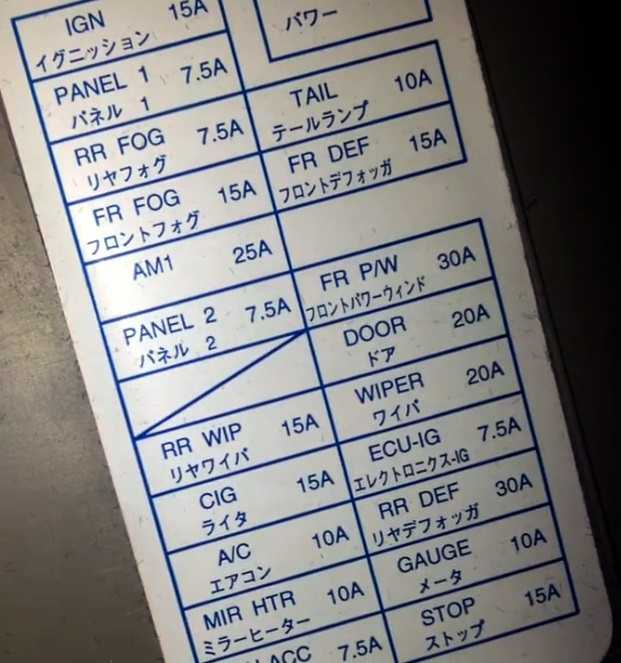 IGN 15A
イグニッション
パワー
PANEL 1 7.5A
パネル 1
TAIL 10A
テールランプ
RR FOG 7.5A
リヤフォグ
FR DEF 15A
フロントデフォッガ
FR FOG 15A
フロントフォグ
AM1 25A
FR P/W 30A
フロントパワーウィンド
PANEL 2 7.5A
パネル 2
DOOR 20A
ドア
WIPER 20A
ワイパ
RR WIP 15A
リヤワイパ
ECU-IG 7.5A
エレクトロニクス-IG
CIG 15A
ライタ
RR DEF 30A
リヤデフォッガ
A/C 10A
エアコン
GAUGE 10A
メータ
MIR HTR 10A
ミラーヒーター
STOP 15A
ストップ
ACC 7.5A